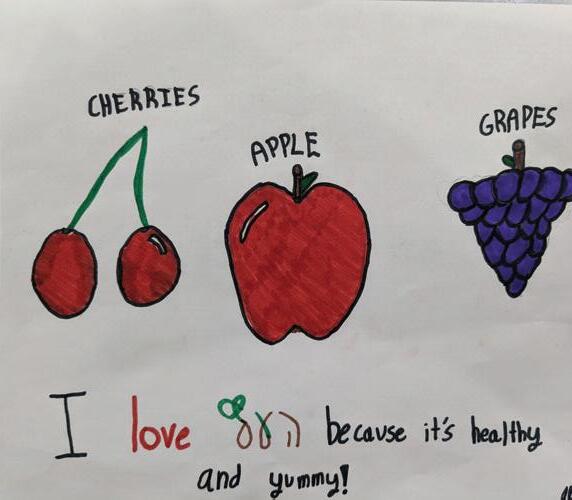 CHERRIES
APPLE
GRAPES
I love because it's healthy
and yummy!